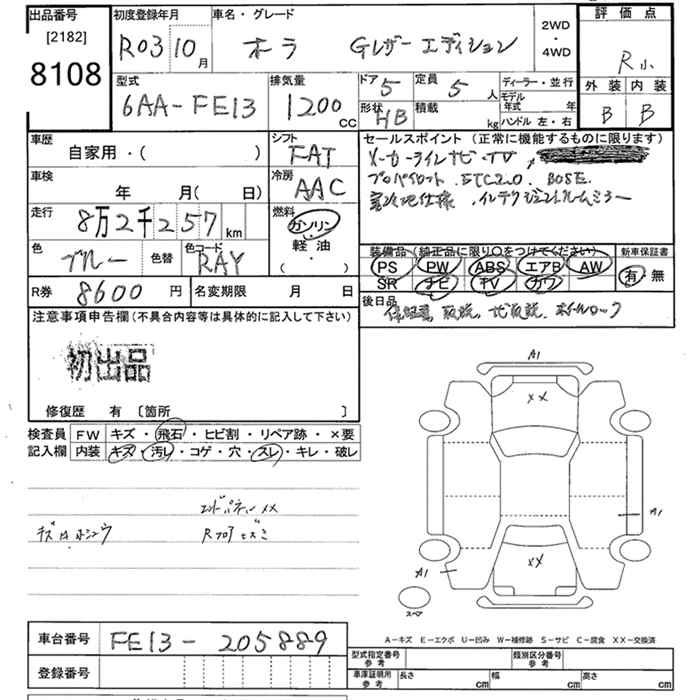 出品番号 初度登録年月 車名・グレード 2WD・4WD 評価点
[2182]
8108
R03 10月 オーラ Gレザーエディション R小
型式 排気量 ドア 5 定員 5人 ディーラー・並行 外装 内装
6AA-FE13 1200cc 形状 HB 積載 kg モデル年式 年 ハンドル 左・右 B B
車歴 シフト セールスポイント (正常に機能するものに限ります)
自家用・( ) FAT メーカーライン ナビ・TV,
車検 冷房 プロパイロット、ETC2.0、BOSE、
年 月( 日) AAC 寒冷地仕様、インテリジェントルームミラー
走行 燃料
8万2千257km ガソリン
軽油
( ・ )
装備品 (純正品に限り○をつけてください) 新車保証書
色 色替 色コード PS PW ABS エアB AW 有・無
ブルー RAY SR ナビ TV カワ
R券 8600円 名変期限 月 日 後日品
保証書、取説、ナビ取説、ホイールロック
注意事項申告欄(不具合内容等は具体的に記入して下さい)
初出品
修復歴 有 〔箇所 〕
検査員 FW キズ・飛石・ヒビ割・リペア跡・×要
記入欄 内装 キズ・汚レ・コゲ・穴・スレ・キレ・破レ
エンドパネル XX
RフロアヒズミA1
XX
A1
XX
A1
スペア
車台番号 FE13-205889
登録番号
A-キズ E-エクボ U-凹み W-補修跡 S-サビ C-腐食 XX-交換済
型式指定番号 参考 類別区分番号 参考
車庫証明用 参考 長さ cm 幅 cm 高さ cm